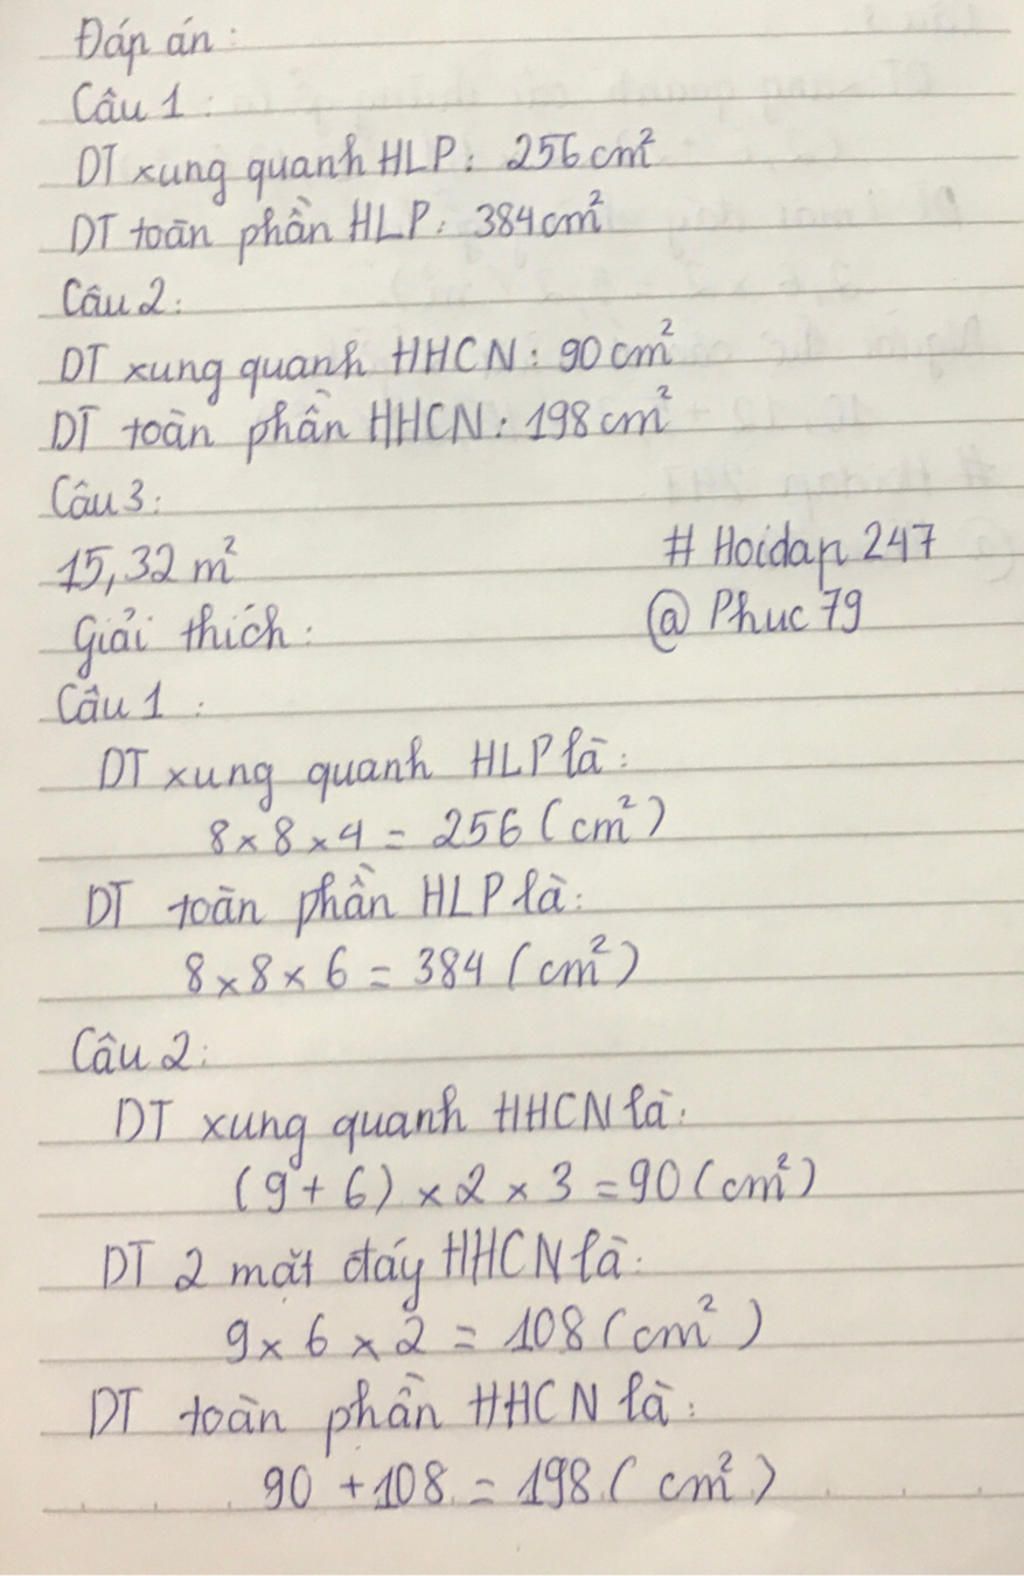 Đáp án:
Câu 1:
DT xung quanh HLP: 256 cm²
DT toàn phần HLP: 384 cm²
Câu 2:
DT xung quanh HHCN: 90 cm²
DT toàn phần HHCN: 198 cm²
Câu 3:
15,32 m²
# Hoidap 247
Giải thích:
@ Phuc 79
Câu 1:
DT xung quanh HLP là:
8 × 8 × 4 = 256 (cm²)
DT toàn phần HLP là:
8 × 8 × 6 = 384 (cm²)
Câu 2:
DT xung quanh HHCN là:
(9 + 6) × 2 × 3 = 90 (cm²)
DT 2 mặt đáy HHCN là:
9 × 6 × 2 = 108 (cm²)
DT toàn phần HHCN là:
90 + 108 = 198 (cm²)